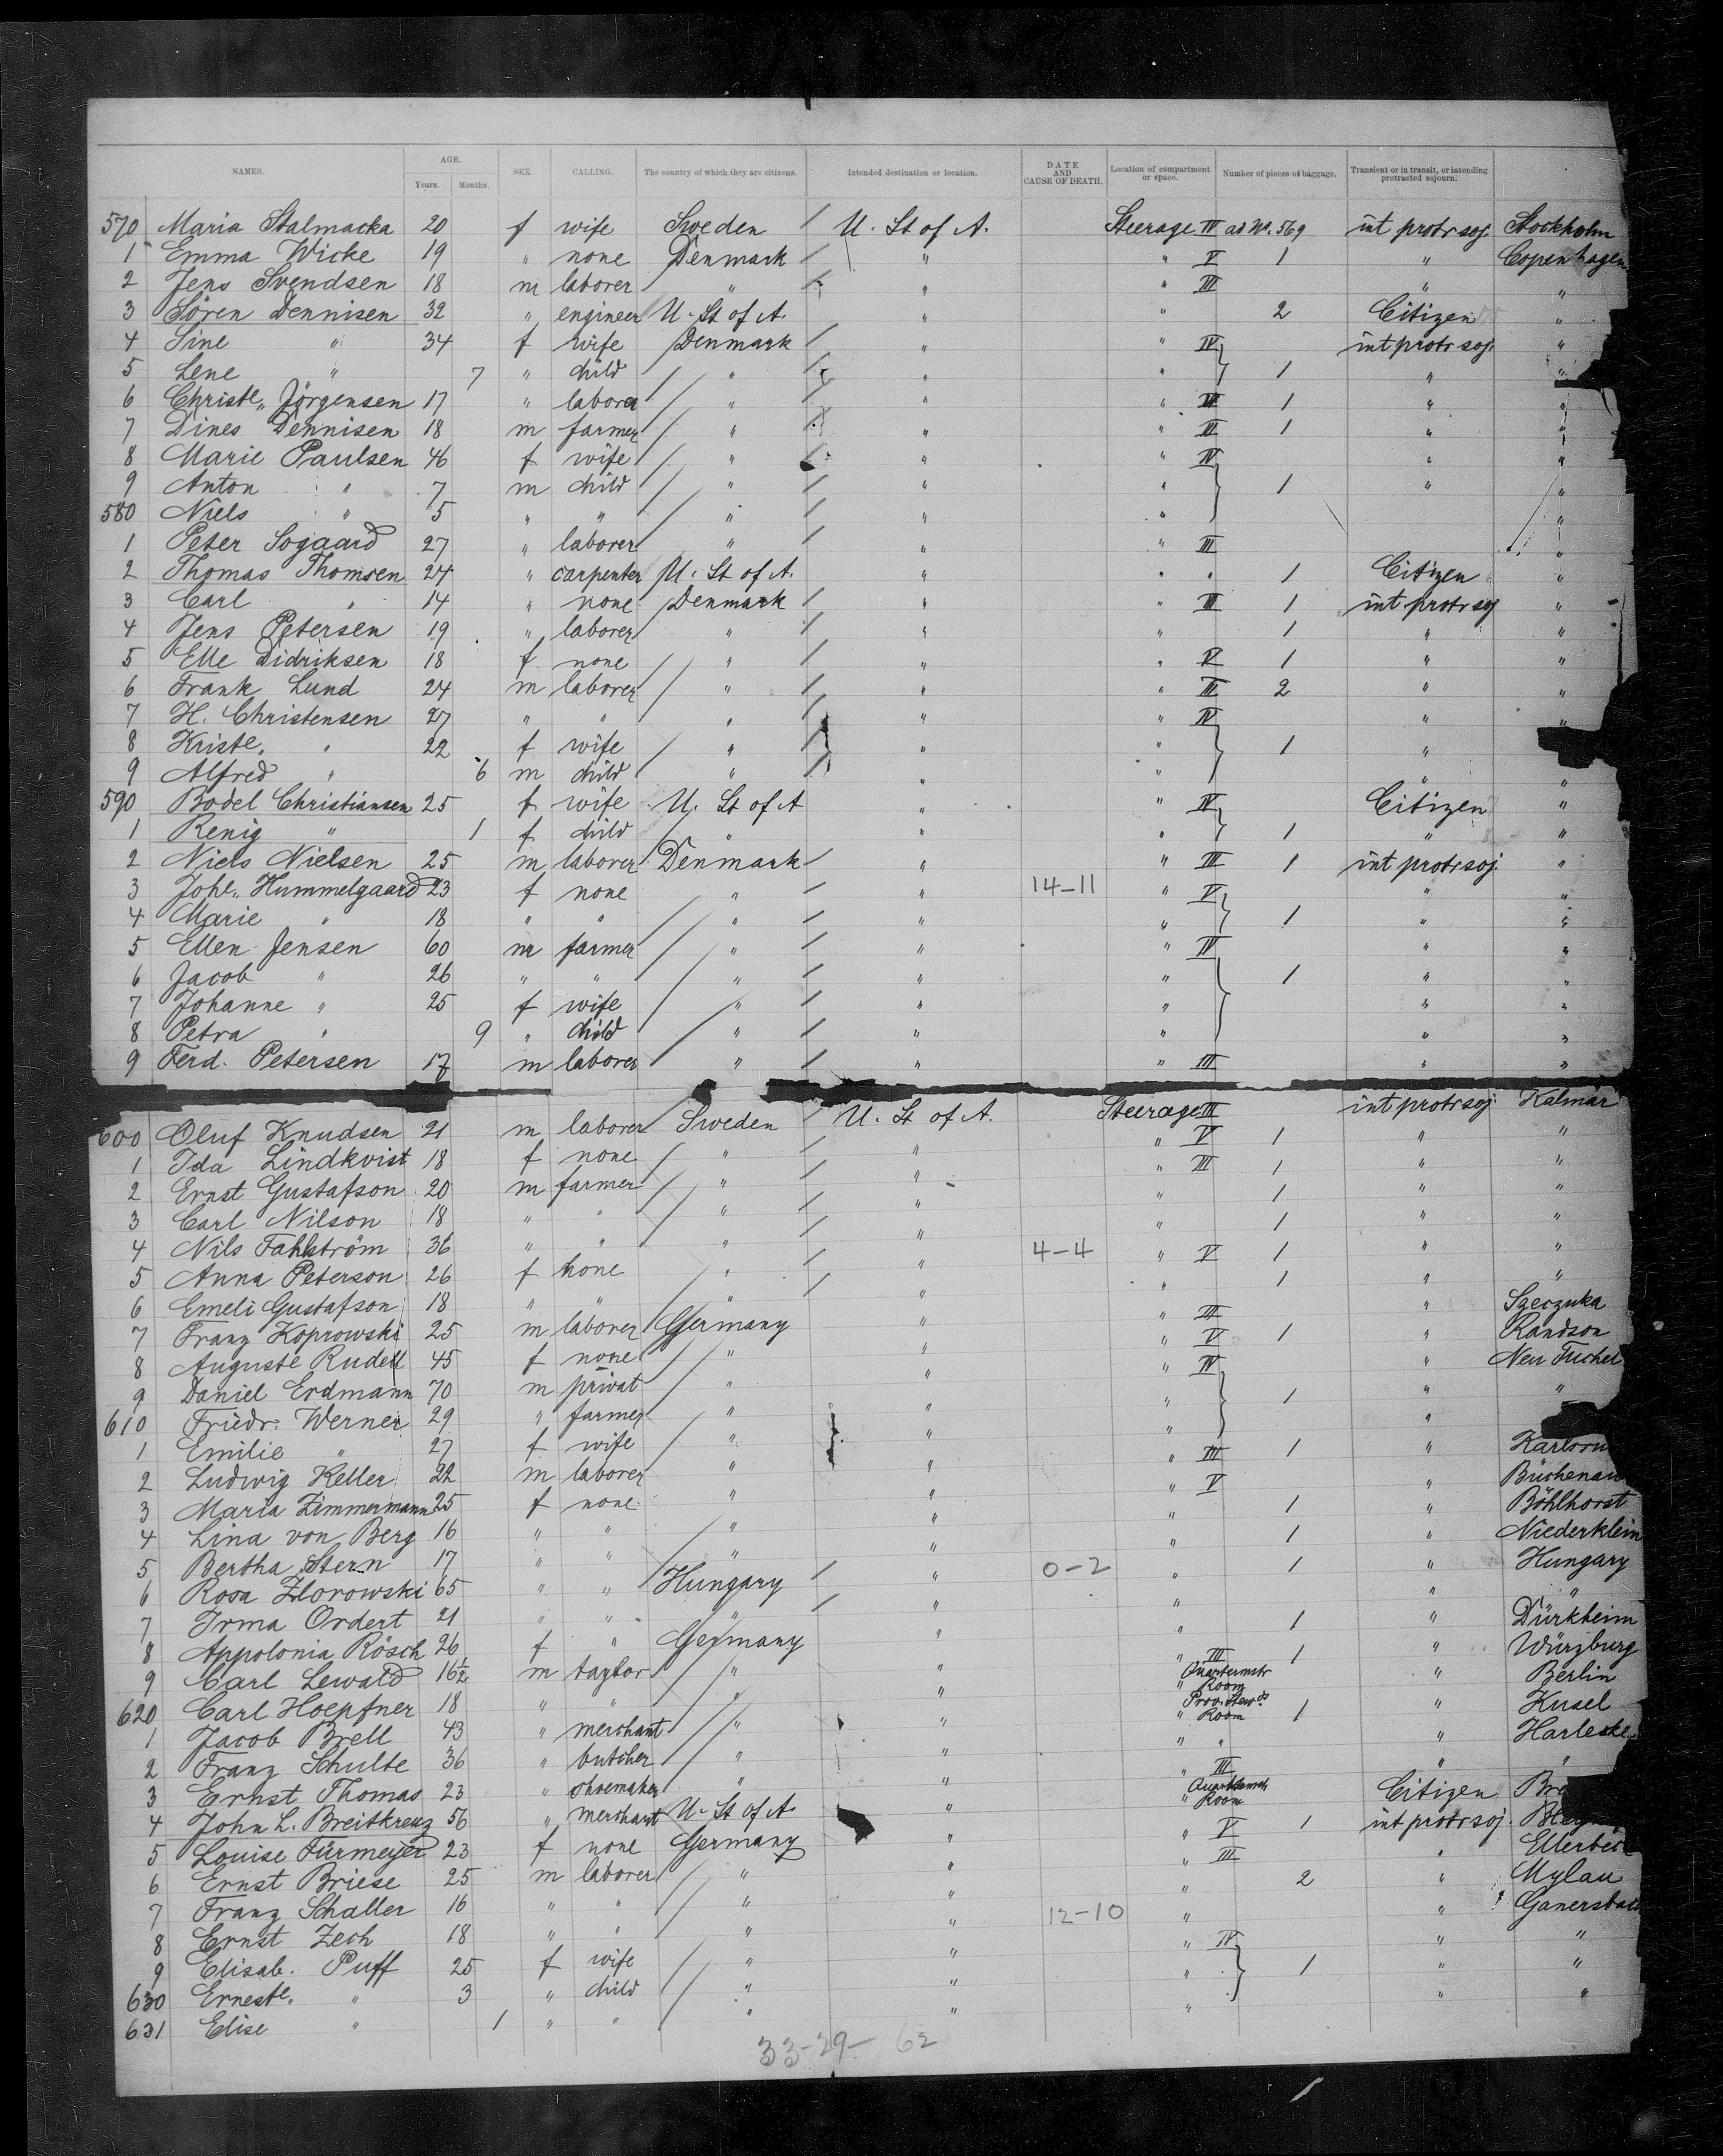 NAMES. AGE. Years. Months. SEX. CALLING. The country of which they are citizens. Intended destination or location. DATE AND CAUSE OF DEATH. Location of compartment or space. Number of pieces of baggage. Transient or in transit, or intending protracted sojourn.
570 Maria Stalmacka 20 f wife Sweden / U. St of A. Steerage III as No. 569 int protr soj Stockholm
1 Emma Wicke 19 " none Denmark / " " V 1 " Copenhagen
2 Jens Svendsen 18 m laborer " / " " III " "
3 Sören Dennisen 32 " engineer U. St of A. " " 2 Citizen "
4 Sine " 34 f wife Denmark / " " IV int protr soj "
5 Lene " 7 " child " / " " 1 " "
6 Christe,, Jörgensen 17 " laborer " / " " III 1 " "
7 Dines Dennisen 18 m farmer " / " " III 1 " "
8 Marie Paulsen 46 f wife " / " " IV " "
9 Anton " 7 m child " / " " 1 " "
580 Niels " 5 " " " / " " "
1 Peter Sogaard 27 " laborer " / " " III "
2 Thomas Thomsen 24 " carpenter U. St of A. " " " 1 Citizen "
3 Carl " 14 " none Denmark / " " III 1 int protr soj "
4 Jens Petersen 19 " laborer " / " " 1 " "
5 Elle Didriksen 18 f none " / " " V 1 " "
6 Frank Lund 24 m laborer " / " " III 2 " "
7 H. Christensen 27 " " " / " " IV " "
8 Kriste. " 22 f wife " / " " 1 "
9 Alfred " 6 m child " / " " " "
590 Bodel Christiansen 25 f wife U. St of A " " IV Citizen "
1 Renig " 1 f child " " " 1 " "
2 Niels Nielsen 25 m laborer Denmark / " " III 1 int protr soj. "
3 Johe,, Hummelgaard 23 f none " / " 14-11 " V " "
4 Marie " 18 " " " / " " 1 " "
5 Ellen Jensen 60 m farmer " / " " IV " "
6 Jacob " 26 " " " / " " 1 " "
7 Johanne " 25 f wife " / " " " "
8 Petra " 9 " child " / " " " "
9 Ferd. Petersen 17 m laborer " / " " III " "
600 Oluf Knudsen 21 m laborer Sweden / U. St of A. Steerage III int protr soj Kalmar
1 Ida Lindkvist 18 f none " / " " V 1 " "
2 Ernst Gustafson 20 m farmer " / " " III 1 " "
3 Carl Nilson 18 " " " / " " 1 " "
4 Nils Fahlström 36 " " " / " " 1 " "
5 Anna Peterson 26 f none " / " 4-4 " V 1 " "
6 Emeli Gustafson 18 " " " / " " 1 " "
7 Franz Koprowski 25 m laborer Germany " " III " Szeczuka
8 Auguste Rudell 45 f none " " " V 1 " Randson
9 Daniel Erdmann 70 m privat " " " IV " Neu Tuchel
610 Friedr. Werner 29 " farmer " " " 1 " "
1 Emilie " 27 f wife " " " "
2 Ludwig Keller 22 m laborer " " " III 1 "
3 Maria Zimmermann 25 f none " " " V " Büchenau
4 Lina von Berg 16 " " " " " 1 " Böhlhorst
5 Bertha Stern 17 " " " " " 1 " Niederklein
6 Rosa Zlorowski 65 " " Hungary / " 0-2 " 1 " Hungary
7 Irma Ordert 21 " " " / " " " "
8 Appolonia Rösch 26 f " Germany " " 1 " Dürkheim
9 Carl Lewald 16½ m taylor " " " III 1 " Würzburg
620 Carl Hoepfner 18 " " " " Quartermstr " Room " Berlin
1 Jacob Brell 43 " merchant " " Prov. Stewds " Room 1 " Kusel
2 Franz Schulte 36 " butcher " " " " "
3 Ernst Thomas 23 " shoemaker " " " III " "
4 John L. Breitkreuz 56 " merchant U. St of A. " " Room Citizen
5 Louise Fürmeyer 23 f none Germany " " V 1 int protr soj.
6 Ernst Briese 25 m laborer " " " III "
7 Franz Schaller 16 " " " " " 2 " Mylau
8 Ernst Zech 18 " " " " 12-10 " "
9 Elisab. Puff 25 f wife " " " IV " "
630 Erneste. " 3 " child " " " 1 " "
631 Elise " 1 " " " " " " "
33-29- 62